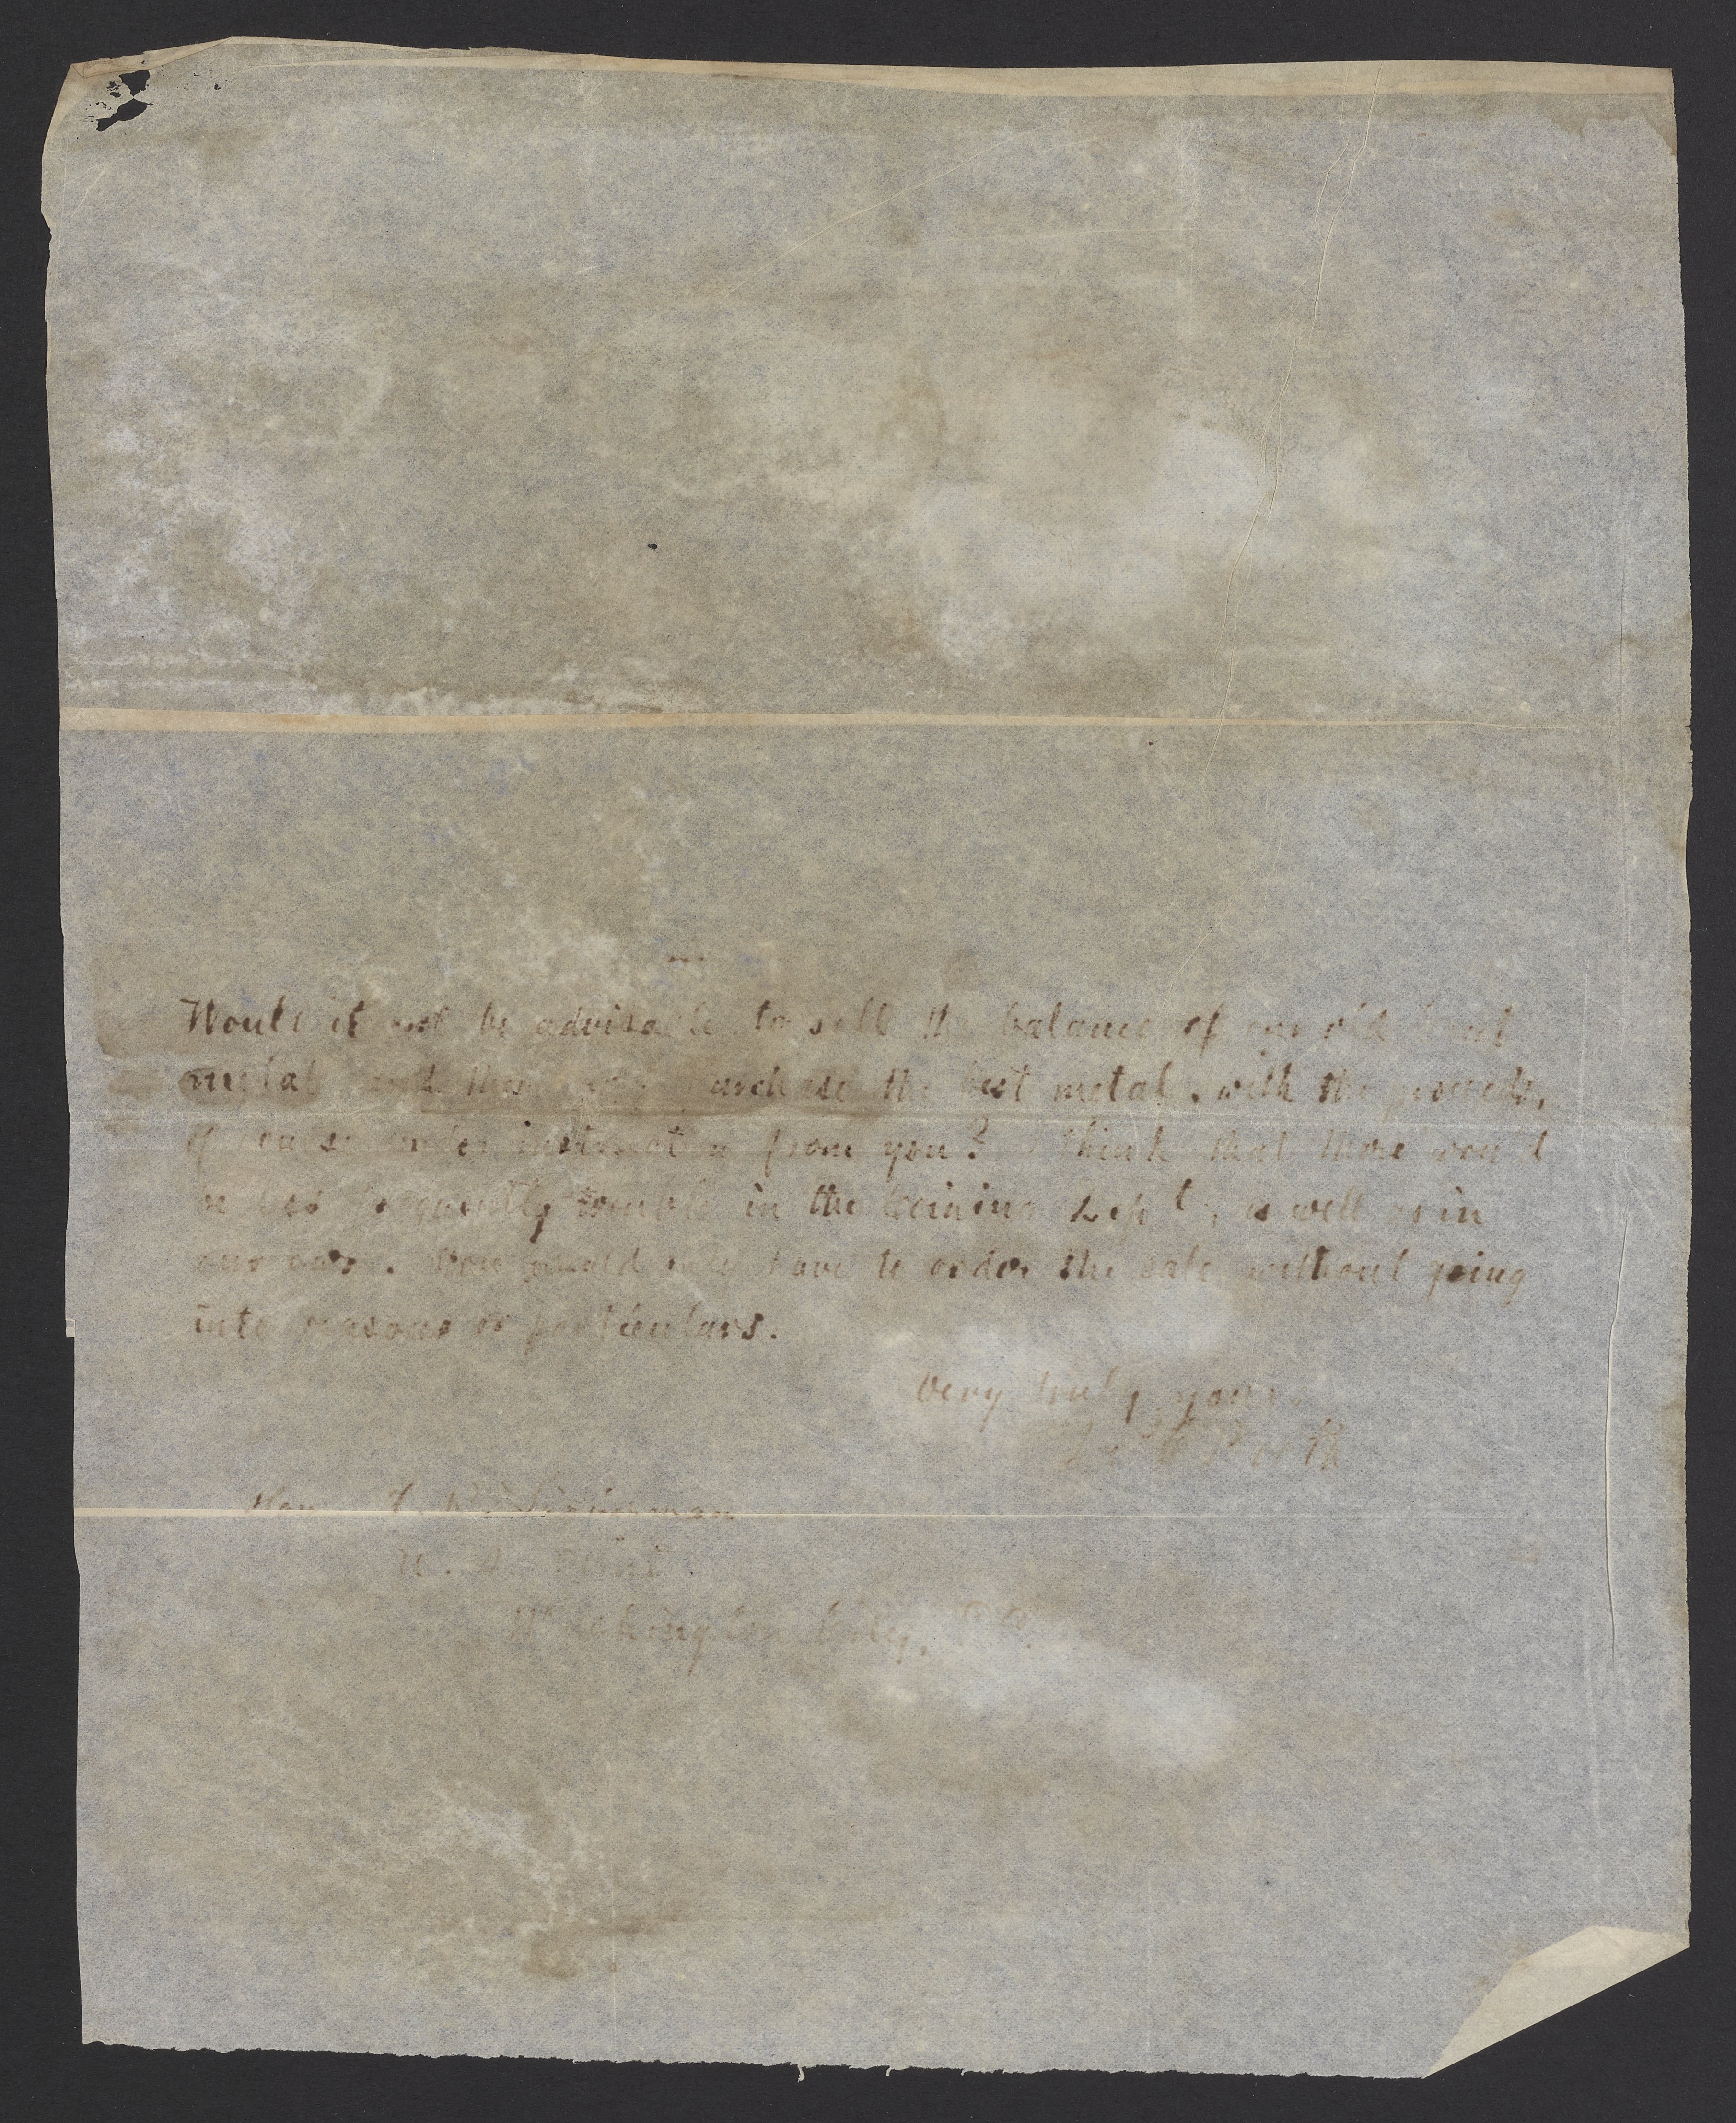 Would it not be advisable to sell the balance of our old
metal and then purchase the best metal, with the proceeds,
if under instruction from you? think that there would
be less frequently trouble in the coining Dept, as well as in
our own. You would only have to order the sale, without going
into reasons or particulars.
Very truly yours
Hon
Washington City, D.C.